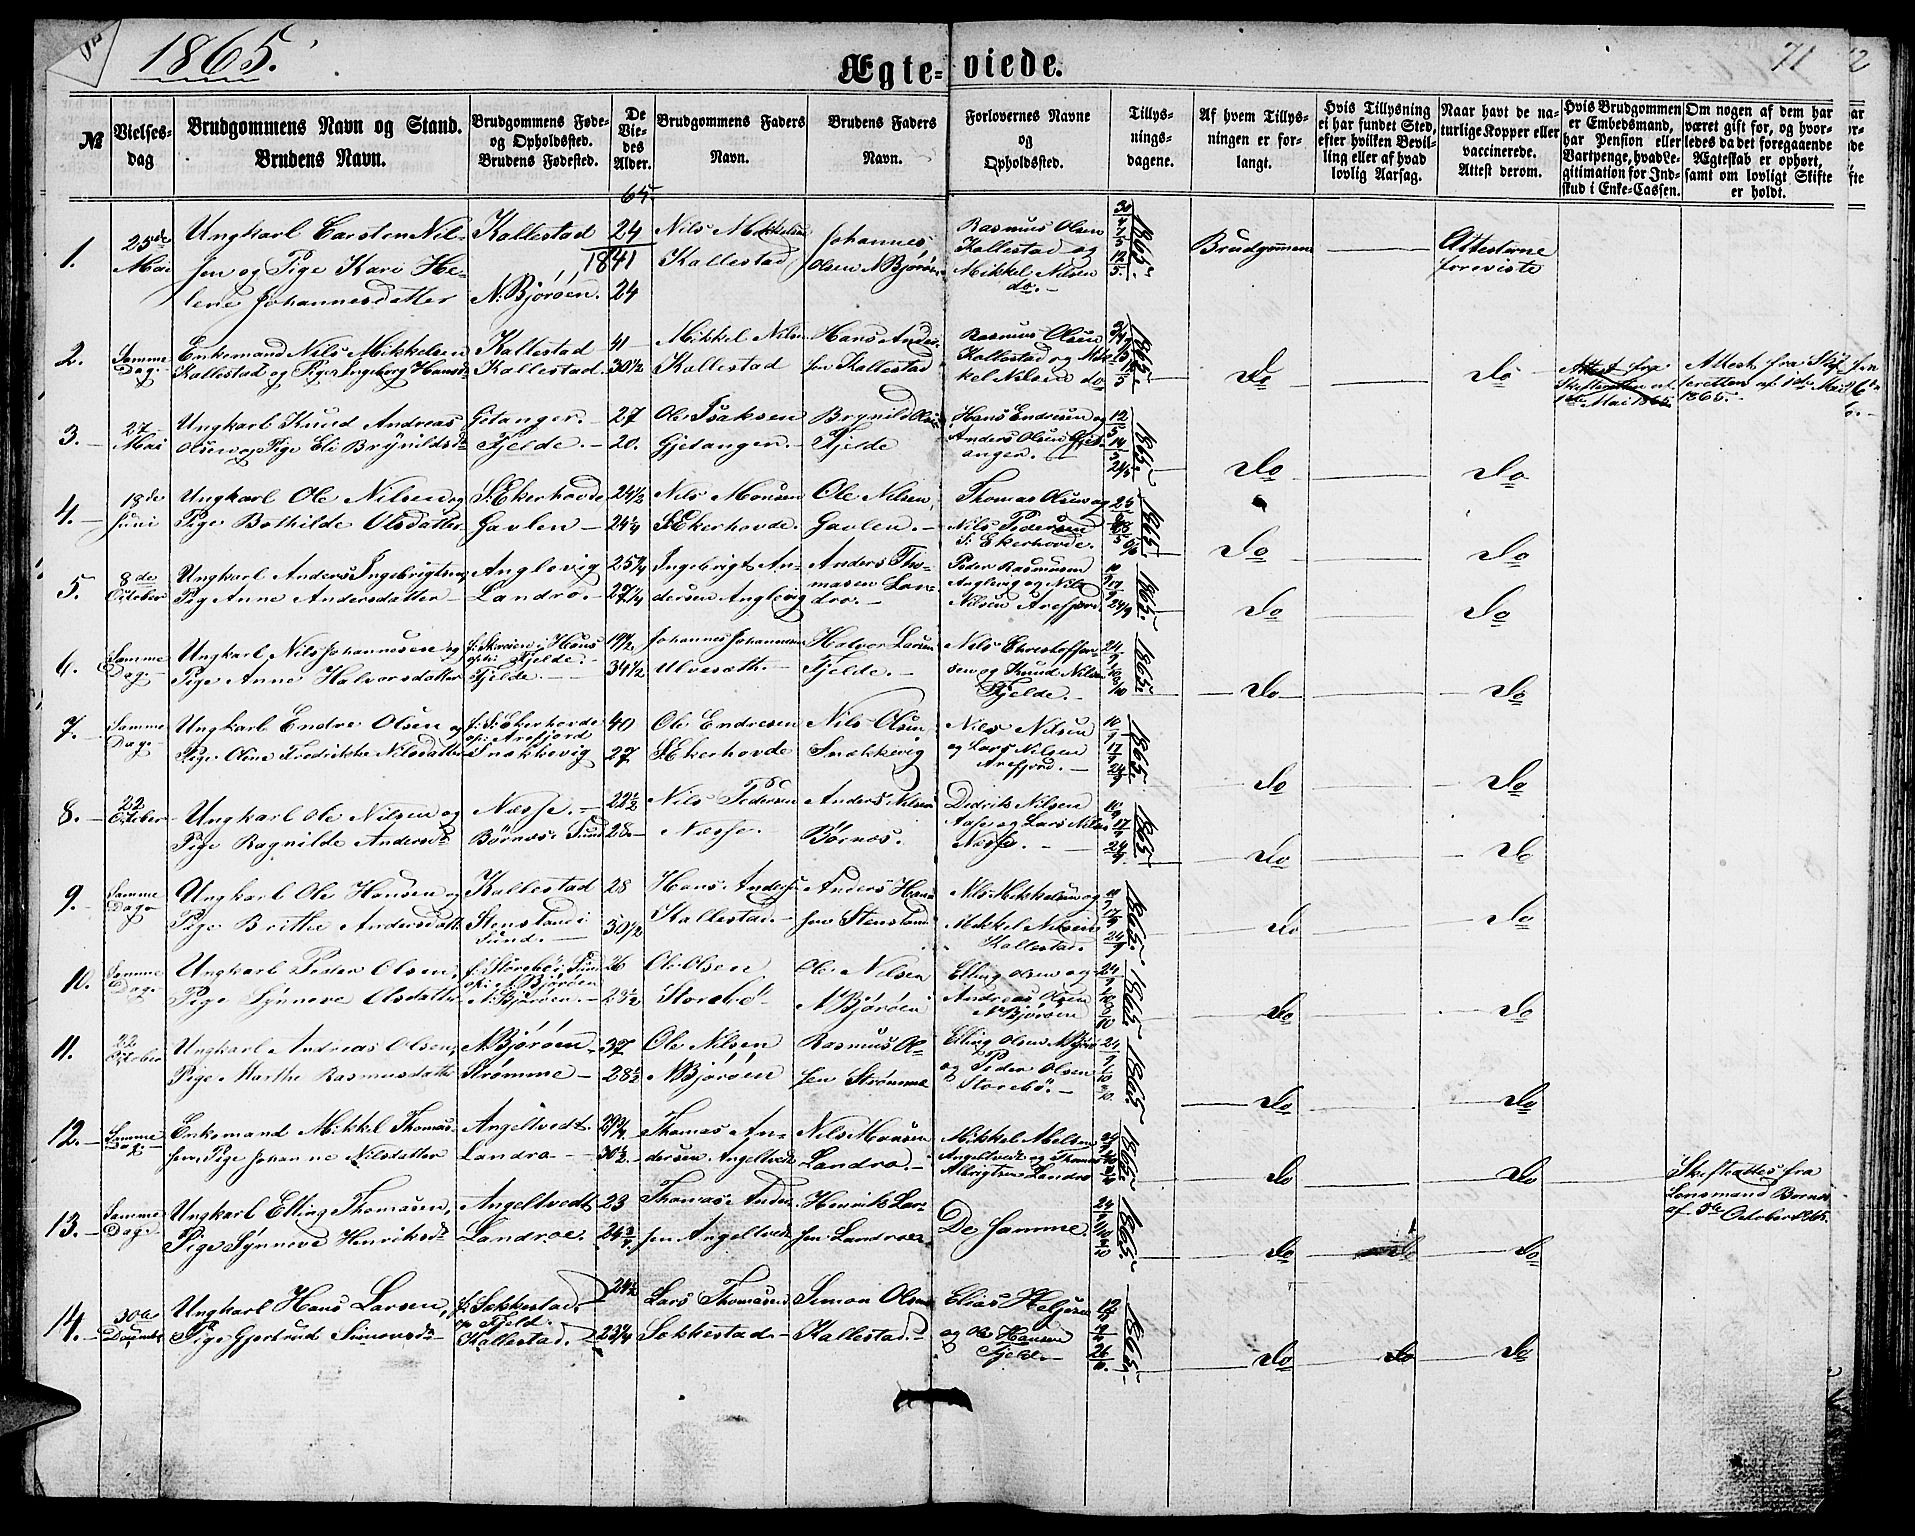 1865.
Ægte-viede.
71
№
Vielses-
dag
Brudgommens Navn og Stand.
Brudens Navn.
Brudgommens Føde-
og Opholdssted.
Brudens Fødested.
De
Vie-
des
Alder.
Brudgommens Faders
Navn.
Brudens Faders
Navn.
Forlovernes Navne
og
Opholdssted.
Tillys-
nings-
dagene.
Af hvem Tillys-
ningen er for-
langt.
Hvis Tillysning
ei har fundet Sted,
efter hvilken Bevil-
ling eller af hvad
lovlig Aarsag.
Naar havt de na-
turlige Kopper eller
vaccinerede.
Attest derom.
Hvis Brudgommen
er Embedsmand,
har Pension eller
Vartpenge, hvad Le-
gitimation for Ind-
skud i Enke-Cassen.
Om nogen af dem har
været gift før, og hvor-
ledes da det foregaaende
Ægteskab er ophørt,
samt om lovligt Skifte
er holdt.
65
1.
25de
Mai
Ungkarl Carsten Nil-
sen og Pige Kari He-
lene Johannesdatter
Kallestad
N. Bjorøen.
24
1841
24
Nils Mikkelsen
Kallestad
Johannes
Olsen N Bjorøen
Rasmus Olsen
Kallestad og
Mikkel Nilsen
do.
1865.
Brudgommen
Attesterne
foreviste
2.
Samme
Dag.
Enkemand Nils Mikkelsen
Kallestad og Pige Ingeborg Hansd
Kallestad
Kallestad.
41
30 1/2
Mikkel Nilsen
Kallestad
Hans Ander-
sen Kallestad
Rasmus Olsen
Kallestad og Mik-
kel Nilsen do
1865.
Do
Do
Attest fra
1ste Mai 1865.
Attest fra Skif-
teretten af 1ste Mai
1865.
3.
27
Mai
Ungkarl Knud Andreas
Olsen og Pige Eli Brynildsd.
Gjetanger.
Fjelde.
27
20.
Ole Isaksen
Gjetangen.
Brynild Olsen
Fjelde
Hans Endresen og
Anders Olsen Gjet-
anger.
1865
Do
Do
4.
18de
Juni
Ungkarl Ole Nilsen og
Pige Bothilde Olsdatter
S. Ekerhovde
Gavlen
24 1/2
24 1/4
Nils Monsen
S. Ekerhovde.
Ole Nilsen,
Gavlen.
Thomas Olsen og
Nils Pedersen
S. Ekerhovde.
1865
Do
Do
5.
8de
October
Ungkarl Anders Ingebrigtsen
Pig Anne Andersdatter
Anglevig
Landro.
25 1/4
27 1/4
Ingebrigt An-
dersen Anglevig
Anders Tho-
masen Lan-
dro.
Peder Rasmussen
Anglevig og Nils
Nilsen Arefjord.
1865.
Do
Do
6.
Samme
Dag.
Ungkarl Nils Johannesen og
Pige Anne Halvorsdatter
Fjelde.
Fjelde.
19 1/2
34 1/2
Johannes Johannesen
Ulveseth.
Halvor Larsen
Fjelde.
Nils Christoffer-
sen og Knud Nilsen
Fjelde.
1865.
Do
Do
7.
Samme
Dag.
Ungkarl Endre Olsen og
Pige Oline Fredrikke Nilsdatter
f: S. Ekerhovde
op: Arefjord
Snekkevig
40
27
Ole Endresen
S. Ekerhovde
Nils Olsen
Snekkevig
Nils Nilsen
og Lars Nilsen
Arefjord.
1865.
Do
Do
8.
22
October
Ungkarl Ole Nilsen og
Pige Ragnilde Andersd
Nesse.
Børnes i Sund
22 1/2
28.
Nils Pedersen
Nesse.
Anders Nilsen
Børnes.
Dedrik Nilsen
og Lars Nilsen
Nesse.
1865
Do
Do
9.
Samme
Dage
Ungkarl Ole Hansen og
Pige Brithe Andersdatter
Kallestad
Stensland i
Sund.
28
30 1/2
Hans Andersen
Kallestad.
Anders Han-
sen Stensland
Nils Mikkelsen og
Mikkel Nilsen
Kallestad.
1865.
Do
Do
10.
Samme
Dage
Ungkarl Peder Olsen,
Pige Synneve Olsdatter
f: Storebø i Sund
op: N. Bjorøen
N. Bjorøen.
26
23 1/2
Ole Olsen
Storebø
Ole Nilsen
N Bjorøen
Elling Olsen og
Andreas Olsen
N Bjorøen
1865
Do
Do
11.
22
October
Ungkarl Andreas Olsen,
Pige Marthe Rasmusdatter
N Bjorøen
Strømme
37
28 1/2
Ole Nilsen
N Bjorøen
Rasmus Ol-
sen Strømme
Elling Olsen N Bjorø
og Peder Olsen
Storebø.
1865
Do
Do
12.
Samme
Dag.
Enkemand Mikkel Thomas-
sen, Pige Johanne Nilsdatter
Angeltvedt.
Landro
30 1/2
Thomas An-
dersen Angeltvedt
Nils Monsen
Landro.
Mikkel Nilsen
Angeltvedt og Thomas
Albrigtsen Landro
1865
Do
Do
Skifteattest fra
Lensmand Bornes
af 3de October 1865.
13.
Samme
Dage
Ungkarl Elling Thomassen,
Pige Synneve Henriksd
Angeltvedt
Landroe.
23
24 3/4
Thomas Ander-
sen Angeltvedt
Henrik Lar-
sen Landroe
De samme.
1865
Do
Do
Do
14.
30te
December
Ungkarl Hans Larsen,
Pige Gjertrud Simonsd
f: Sekkestad,
op Fjeld.
Kallestad.
24 1/2
23 1/4
Lars Thomassen
Sekkestad.
Simon Olsen
Kallestad.
Elias Helgesen
og Ole Hansen
Fjeld.
1865.
Do
Do
Do